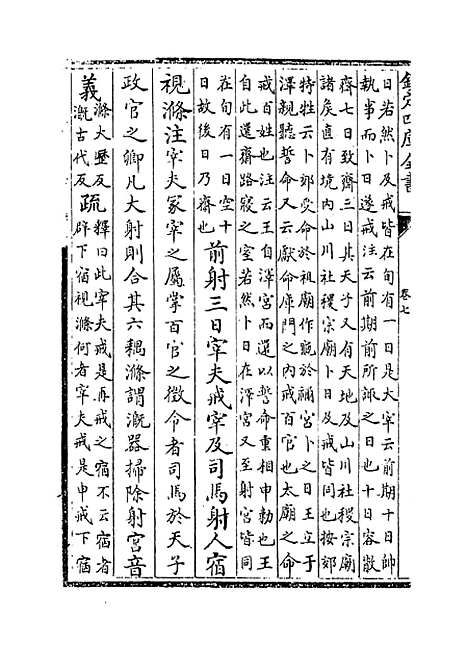 欽定四庫全書
卷七
日若然卜及戒皆在旬有一日是大宰云前期十日帥
執事而卜日遂戒注云前期前所諏之日也十日容散
齊七日致齊三日其天子又有天地及山川社稷宗廟
諸侯直有境内山川社稷宗廟卜日及戒皆同也按郊
特牲云卜郊受命於祖廟作龜於禰宫卜之日王立于
澤親聽誓命又云獻命庫門之内戒百官也太廟之命
戒百姓也注云王自澤宫而還以誓命重相申勅也王
自此還齋路寢之室若然卜日在澤宫又至射宫皆同
在旬有一日空十
日故後日乃齋也
前射三日宰夫戒宰及司馬射人宿
視滌注宰夫冢宰之屬掌百官之徵令者司馬於天子
政官之卿凡大射則合其六耦滌謂溉器掃除射宫音
義
滌大歷反
溉古代反
疏
釋曰此宰夫戒是再戒之宿不云宿者
辟下宿視滌何者宰夫戒是申戒下宿